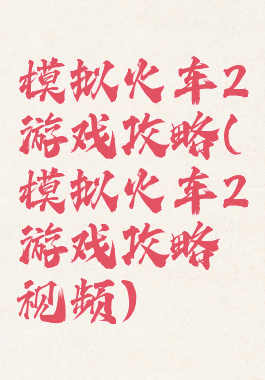 模拟火车2
游戏攻略(
模拟火车2
游戏攻略
视频)